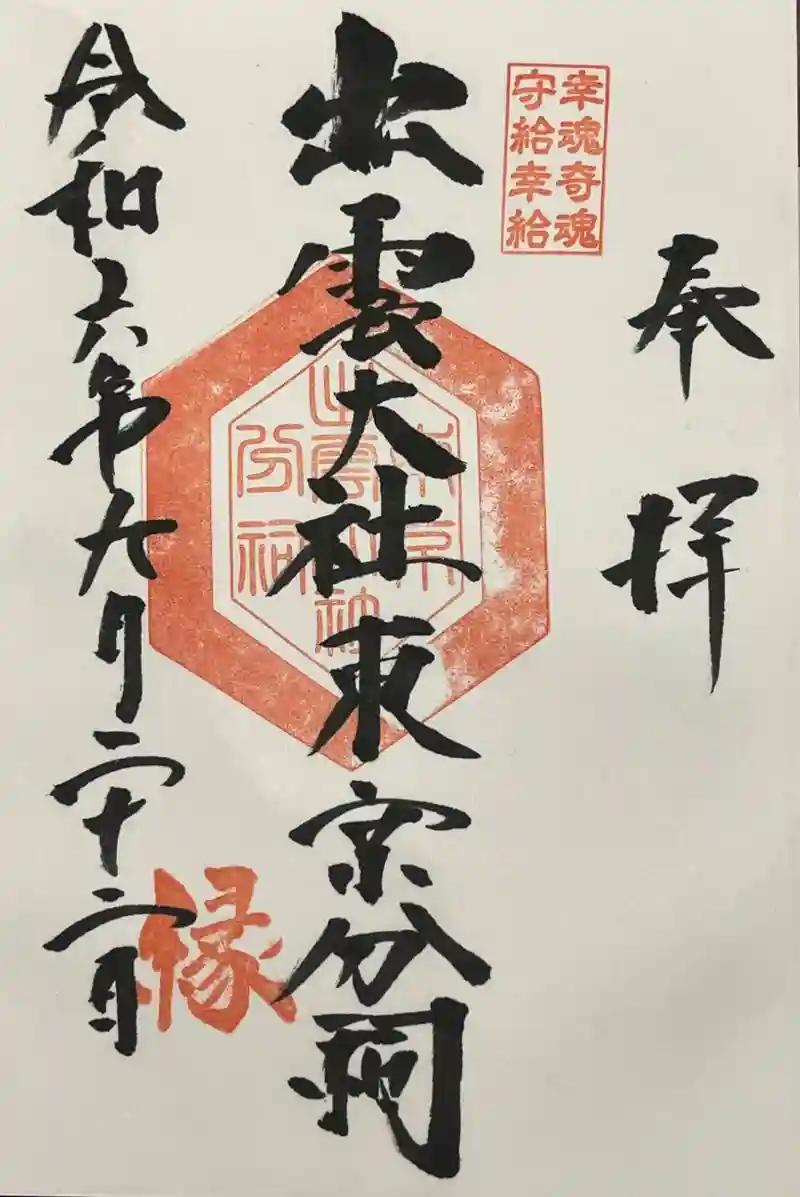 奉拝
幸魂奇魂
守給幸給
出雲大社東京分祠
東京
出雲大社
分祠
縁
令和六年九月二十二日